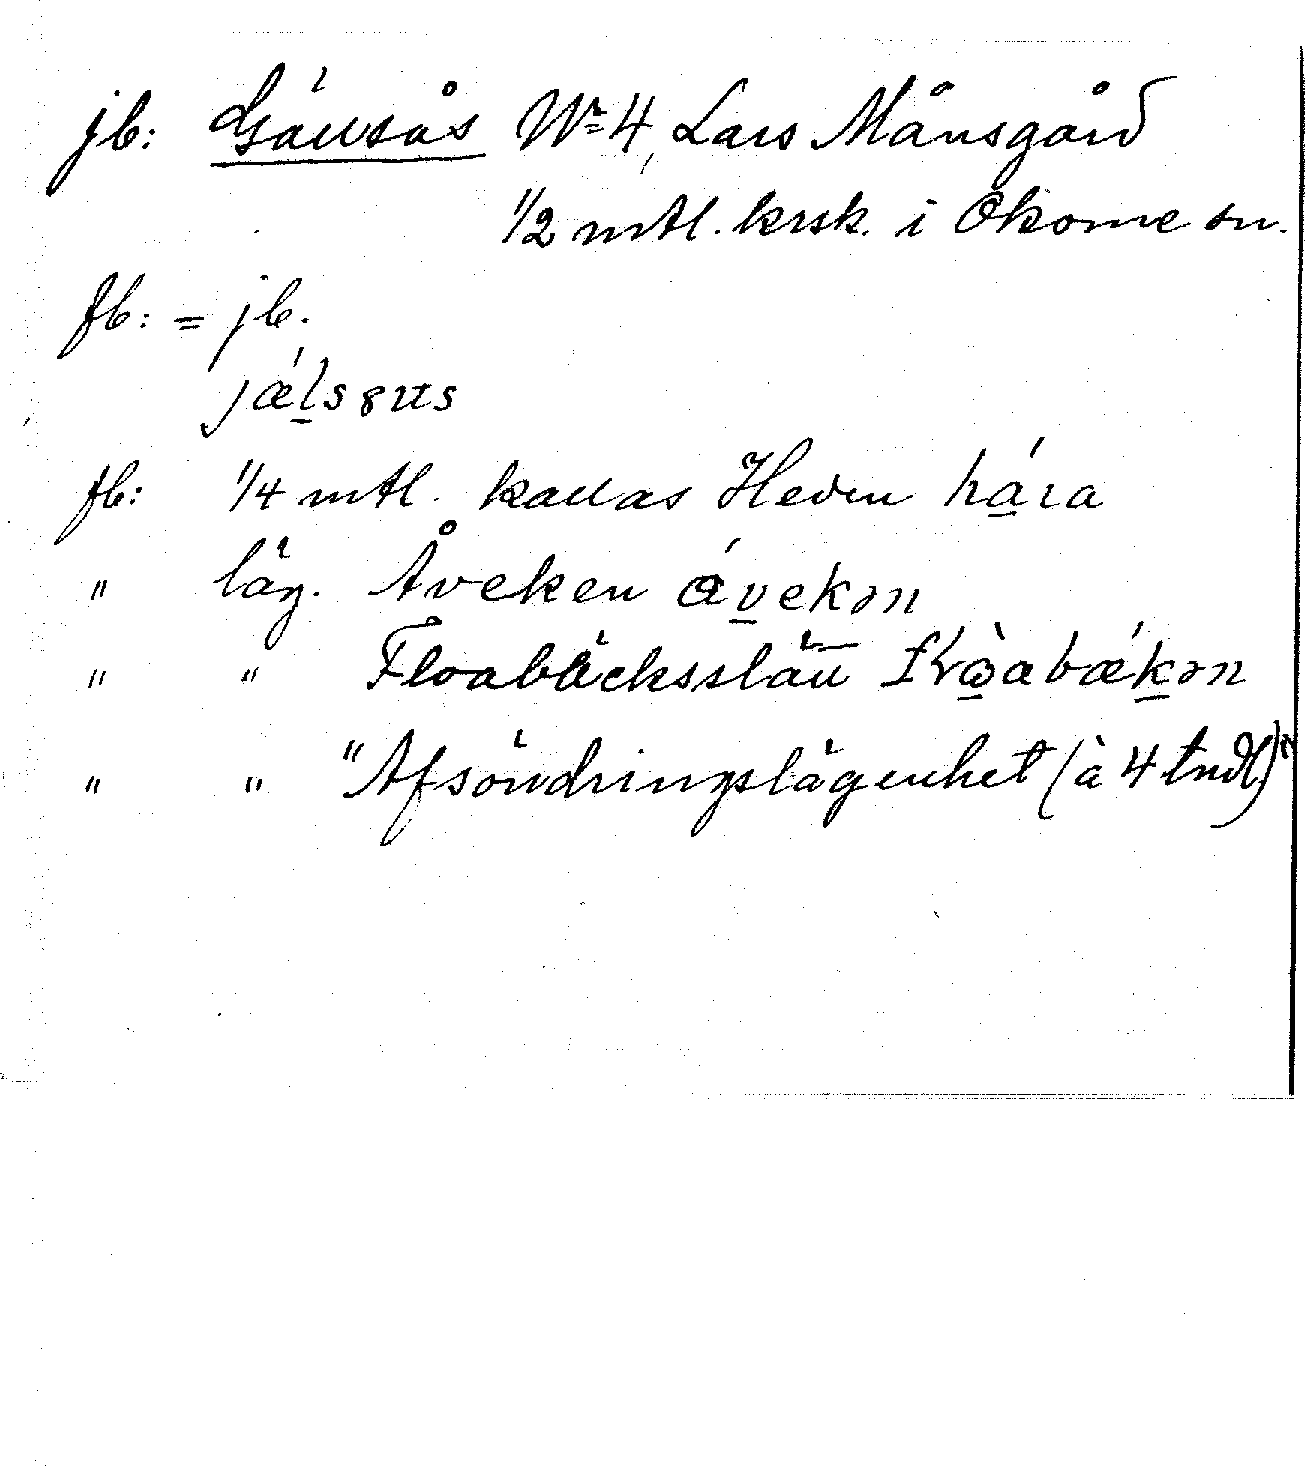 jb: Gällsås Nr 4, Lars Månsgård
1/2 mtl. krsk. i Okome sn.
fb: = jb.
fb: 1/4 mtl. kallas Heden hára
" läg. Åveken ávekən
" " Floabäcksslätt
" " "Afsöndringslägenhet (à 4 tndl)"